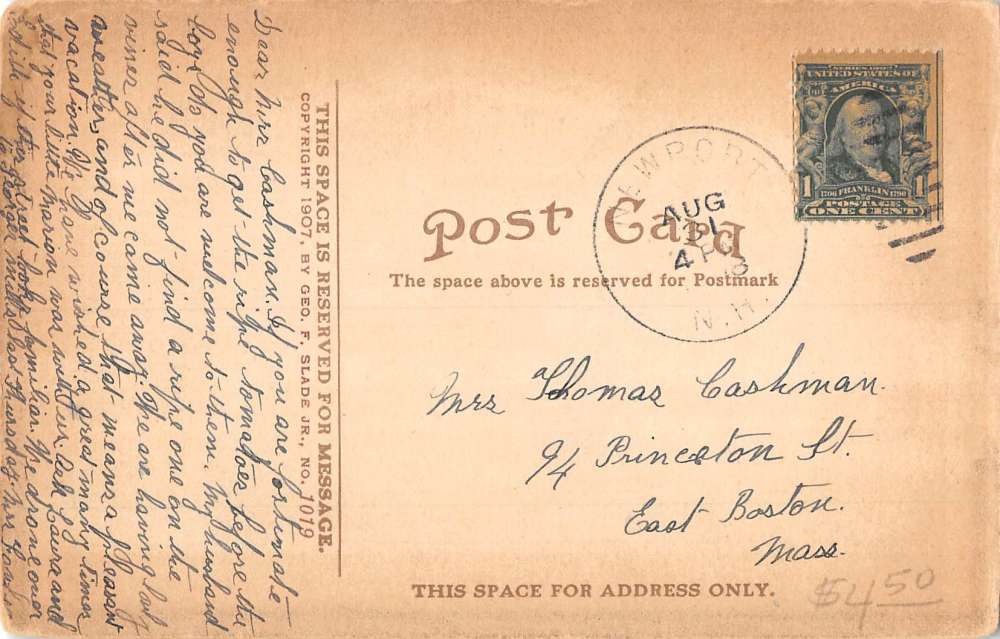 Dear Mrs. Cashman. If you are fortunate
enough to get the ripe tomatoes before the
boys do you are welcome to them. My husband
said he did not find a ripe one on the
vines after we came away. We are having lovely
weather, and of course that means a pleasant
vacation. We have wished a great many times
that your little Marion was with us. Ask Laura and
Edith if this street looks familiar. We drove over
to George Mills last Thursday. Mrs
THIS SPACE IS RESERVED FOR MESSAGE.
COPYRIGHT 1907, BY GEO. F. SLADE JR., NO. 1019
Post Card
The space above is reserved for Postmark
NEWPORT
AUG
31
4 PM
N.H.
SERIES 1902
UNITED STATES OF
AMERICA
1706 FRANKLIN 1790
1 1
POSTAGE
ONE CENT
Mrs Thomas Cashman.
94 Princeton St.
East Boston.
Mass.
THIS SPACE FOR ADDRESS ONLY.
$4.50